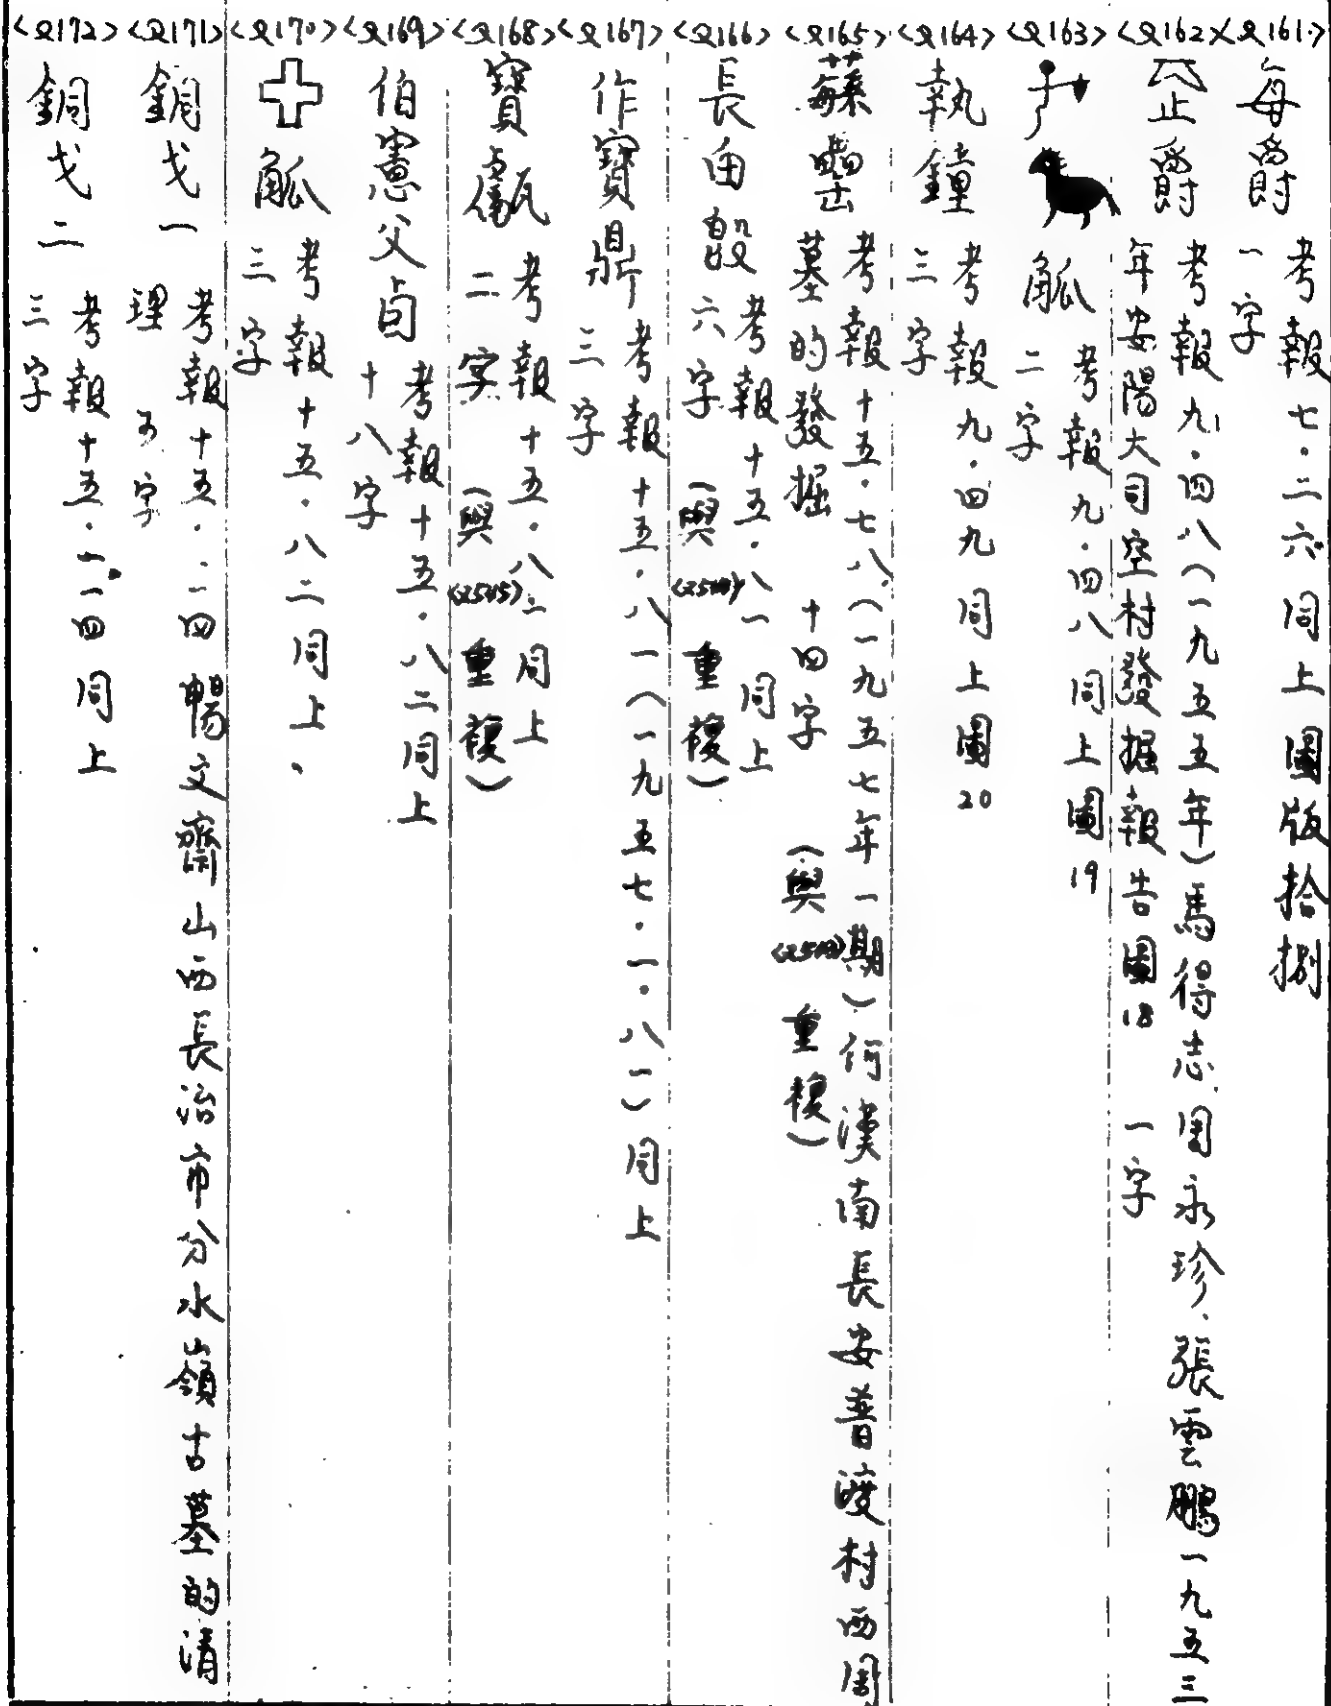 <2161>
每爵
考報七.二六同上圖版拾捌
一字
<2162>
止爵
考報九.四八(一九五五年)馬得志周永珍.張雲鵬一九五三
年安陽大司空村發掘報告圖18 一字
<2163>
觚
考報九.四八同上圖19
二字
<2164>
執鐘
考報九.四九同上圖20
三字
<2165>
考報十五.七八.(一九五七年一期)何漢南長安普渡村西周
墓的發掘 十四字 (與 重複)
<2166>
長甶𣪘
考報十五.八一同上
六字 (與 重複)
<2167>
作寶鼎
考報十五.八一(一九五七.一.八一)同上
三字
<2168>
寶甗
考報十五.八二同上
二字 (與 重複)
<2169>
伯憲父卣
考報十五.八二同上
十八字
<2170>
觚
考報十五.八二同上.
三字
<2171>
銅戈一
考報十五.一一四暢文齋山西長治市分水嶺古墓的清
理 五字
<2172>
銅戈二
考報十五.一一四同上
三字